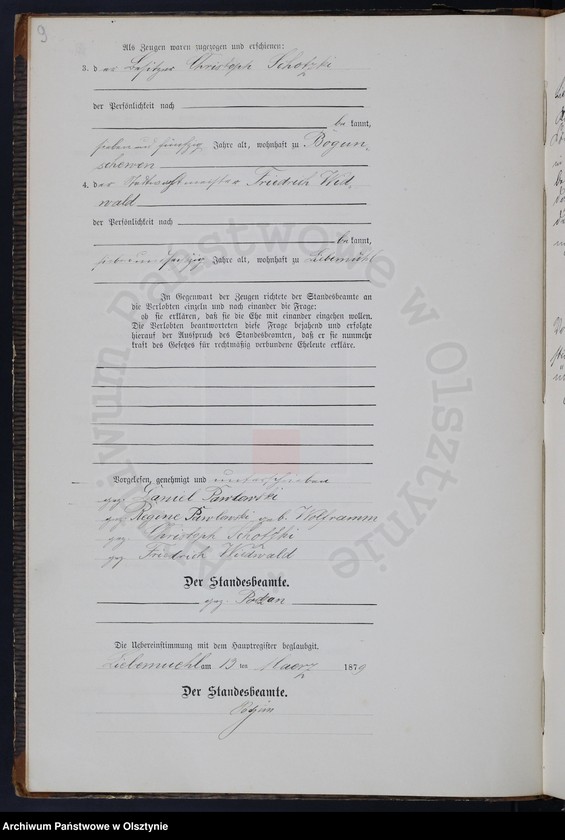 9
Als Zeugen waren zugezogen und erschienen:
3. der Besitzer Christoph Schotzki
der Persönlichkeit nach
be kannt,
sieben und fünfzig Jahre alt, wohnhaft zu Bogun-
schewen
4. der Friedrich Wid-
wald
der Persönlichkeit nach
be kannt,
Jahre alt, wohnhaft zu Liebemühl
In Gegenwart der Zeugen richtete der Standesbeamte an
die Verlobten einzeln und nach einander die Frage:
ob sie erklären, daß sie die Ehe mit einander eingehen wollen.
Die Verlobten beantworteten diese Frage bejahend und erfolgte
hierauf der Ausspruch des Standesbeamten, daß er sie nunmehr
kraft des Gesetzes für rechtmäßig verbundene Eheleute erkläre.
Vorgelesen, genehmigt und unterschrieben
gez. Daniel Pawlowski
gez. Regine Pawlowski geb. Wolframm
gez. Christoph Schotzki
gez. Friedrich Widwald
Der Standesbeamte.
gez.
Die Uebereinstimmung mit dem Hauptregister beglaubigt.
Liebemuehl am 13 ten Maerz 1879
Der Standesbeamte.
Archiwum Państwowe w Olsztynie
Archiwum Państwowe w Olsztynie